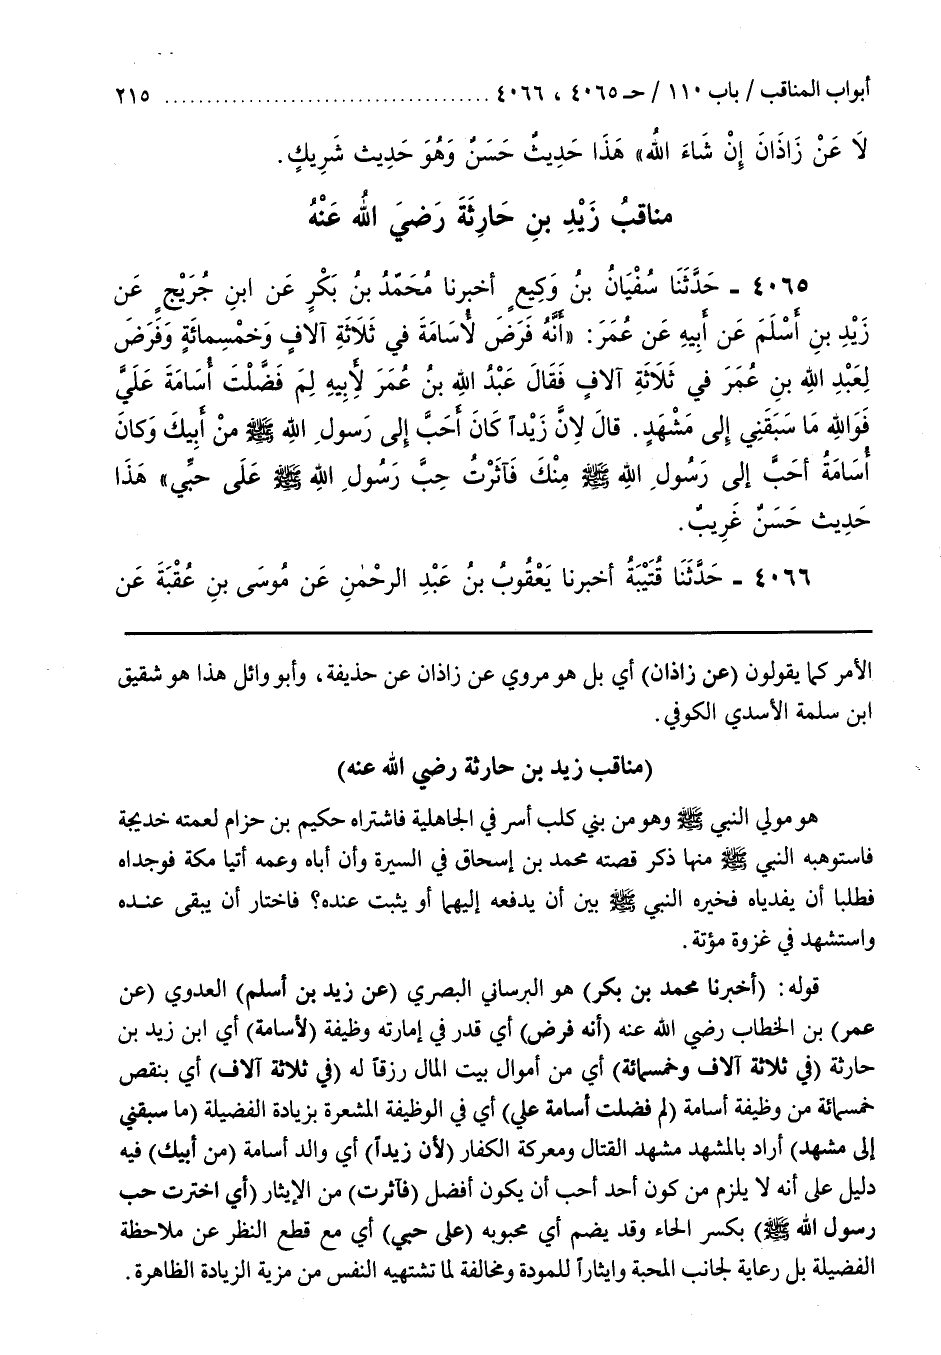 أبواب المناقب / باب ١١٠ / حـ ٤٠٦٥ ، ٤٠٦٦ ........................................ ٢١٥
لَا عَنْ زَاذَانَ إِنْ شَاءَ اللهُ» هَذَا حَدِيثٌ حَسَنٌ وَهُوَ حَدِيث شَرِيكٍ.
مناقبُ زَيْدِ بنِ حَارِثَةَ رَضيَ اللهُ عَنْهُ
٤٠٦٥ ـ حَدَّثَنَا سُفْيَانُ بنُ وَكِيعٍ أخبرنا مُحَمّدُ بنُ بَكْرٍ عَن ابنِ جُرَيْجٍ عَن
زَيْدِ بنِ أَسْلَمَ عَن أَبِيهِ عَن عُمَرَ: «أَنَّهُ فَرَضَ لأُسَامَةَ في ثَلَاثَةِ آلافٍ وَخمْسِمائَةٍ وَفَرَضَ
لِعَبْدِ اللهِ بنِ عُمَرَ في ثَلَاثَةِ آلافٍ فَقَالَ عَبْدُ اللهِ بنُ عُمَرَ لِأَبِيهِ لِمَ فَضَّلْتَ أُسَامَةَ عَلَيَّ
فَوَاللهِ مَا سَبَقَنِي إلى مَشْهَدٍ. قالَ لِانَّ زَيْداً كَانَ أَحَبَّ إلى رَسولِ اللهِ ﷺ منْ أَبِيكَ وَكانَ
أُسَامَةُ أحَبَّ إلى رَسُولِ اللهِ ﷺ مِنْكَ فَآثَرْتُ حِبَّ رَسُولِ اللهِ ﷺ عَلَى حبِّي» هَذَا
حَدِيث حَسَنٌ غَرِيبٌ.
٤٠٦٦ ـ حَدَّثَنَا قُتَيْبَةُ أخبرنا يَعْقُوبُ بنُ عَبْدِ الرحْمٰنِ عَن مُوسَى بنِ عُقْبَةَ عَن
الأمر كما يقولون (عن زاذان) أي بل هو مروي عن زاذان عن حذيفة، وأبو وائل هذا هو شقيق
ابن سلمة الأسدي الكوفي.
(مناقب زيد بن حارثة رضي الله عنه)
هو مولي النبي ﷺ وهو من بني كلب أسر في الجاهلية فاشتراه حكيم بن حزام لعمته خديجة
فاستوهبه النبي ﷺ منها ذكر قصته محمد بن إسحاق في السيرة وأن أباه وعمه أتيا مكة فوجداه
فطلبا أن يفدياه فخيره النبي ﷺ بين أن يدفعه إليهما أو يثبت عنده؟ فاختار أن يبقى عنده
واستشهد في غزوة مؤتة.
قوله: (أخبرنا محمد بن بكر) هو البرساني البصري (عن زيد بن أسلم) العدوي (عن
عمر) بن الخطاب رضي الله عنه (أنه فرض) أي قدر في إمارته وظيفة (لأسامة) أي ابن زيد بن
حارثة (في ثلاثة آلاف وخمسمائة) أي من أموال بيت المال رزقاً له (في ثلاثة آلاف) أي بنقص
خمسمائة من وظيفة أسامة (لم فضلت أسامة علي) أي في الوظيفة المشعرة بزيادة الفضيلة (ما سبقني
إلى مشهد) أراد بالمشهد مشهد القتال ومعركة الكفار (لأن زيداً) أي والد أسامة (من أبيك) فيه
دليل على أنه لا يلزم من كون أحد أحب أن يكون أفضل (فآثرت) من الإيثار (أي اخترت حب
رسول الله ﷺ) بكسر الحاء وقد يضم أي محبوبه (على حبي) أي مع قطع النظر عن ملاحظة
الفضيلة بل رعاية لجانب المحبة وايثاراً للمودة ومخالفة لما تشتهيه النفس من مزية الزيادة الظاهرة.